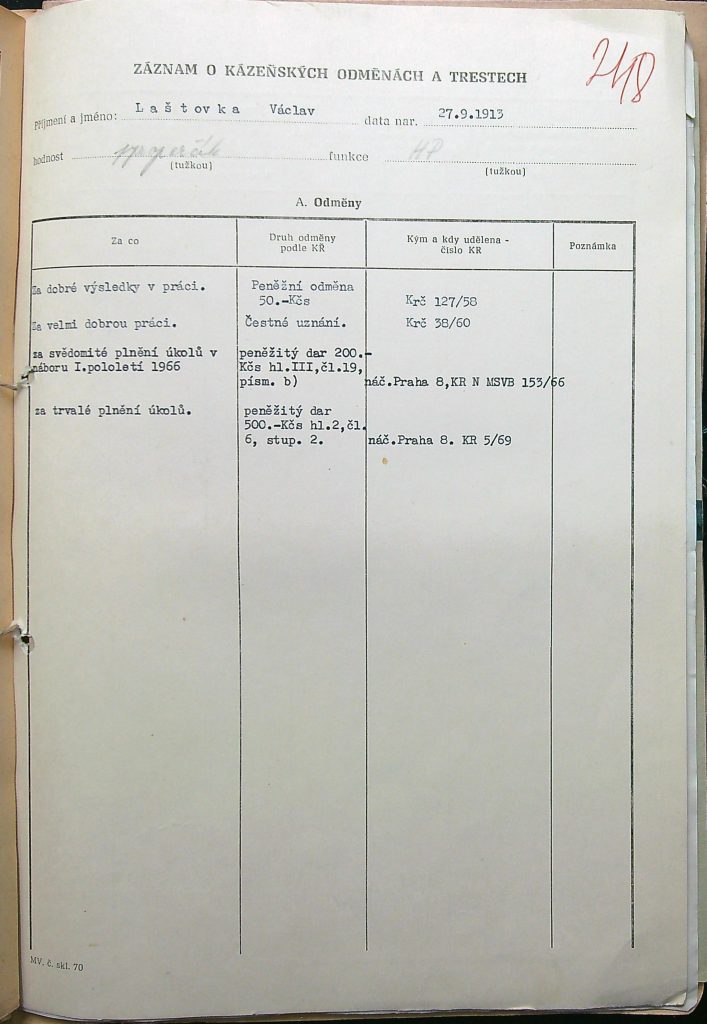 248
ZÁZNAM O KÁZEŇSKÝCH ODMĚNÁCH A TRESTECH
Příjmení a jméno: Laštovka Václav data nar. 27.9.1913
hodnost funkce
(tužkou) (tužkou)
A. Odměny
Za co Druh odměny podle KŘ Kým a kdy udělena - číslo KR Poznámka
Za dobré výsledky v práci. Peněžní odměna
50.-Kčs Krč 127/58
Za velmi dobrou práci. Čestné uznání. Krč 38/60
za svědomité plnění úkolů v peněžitý dar 200.-
náboru I.pololetí 1966 Kčs hl.III,čl.19,
písm. b) náč.Praha 8,KR N MSVB 153/66
za trvalé plnění úkolů. peněžitý dar
500.-Kčs hl.2,čl.
6, stup. 2. náč.Praha 8. KR 5/69
MV. č. skl. 70